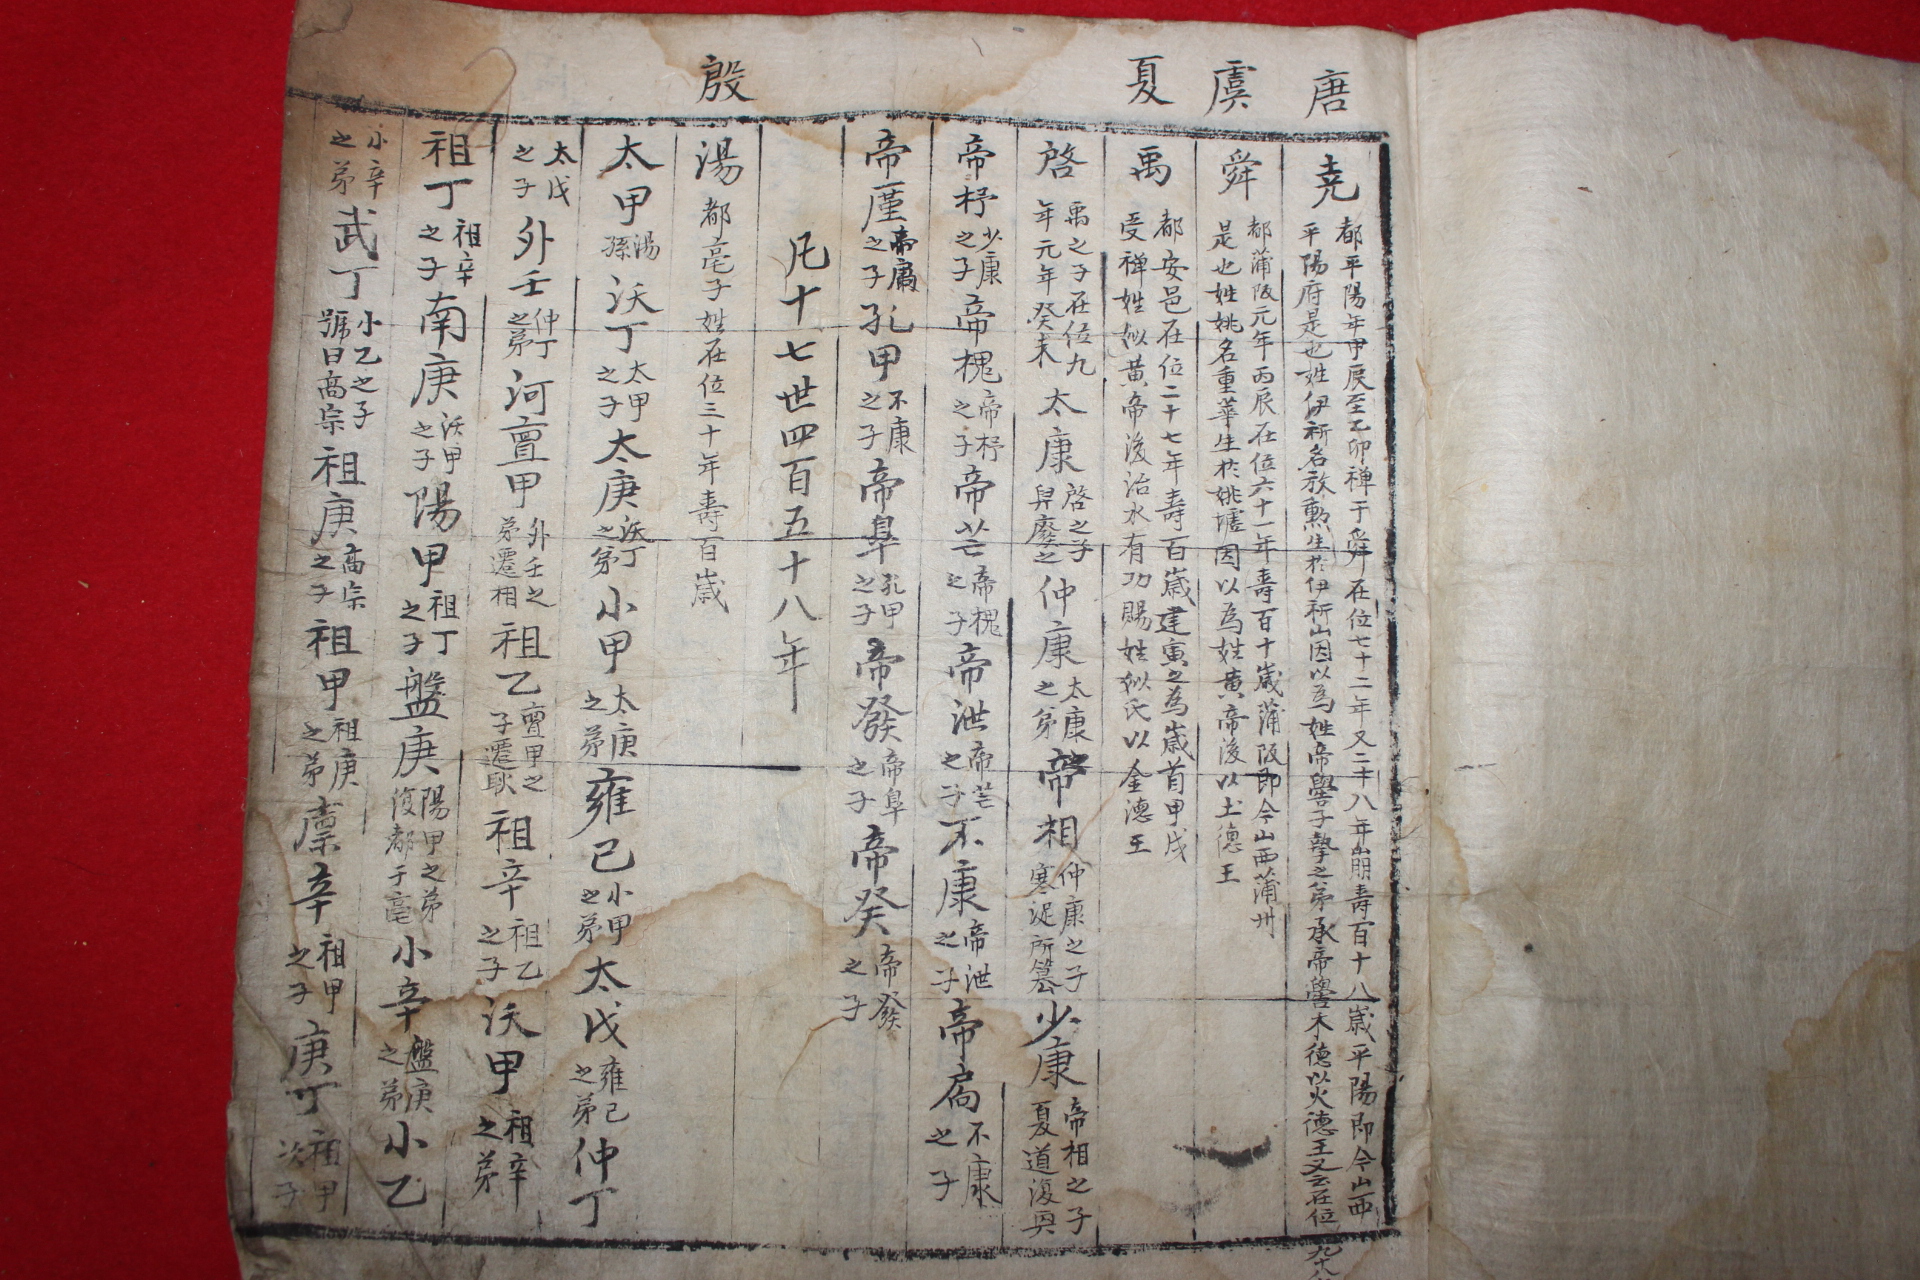 唐
虞
夏
殷
堯 都平陽年甲辰至乙卯禅于舜在位七十二年又二十八年崩壽百十八歲平陽即今山西
平陽府是也姓伊祈名放勳生於伊祈山因以為姓帝嚳子摯之弟承帝嚳木德以火德王又云在位
九十八
舜 都蒲阪元年丙辰在位六十一年壽百十歲蒲阪即今山西蒲州
是也姓姚名重華生於姚墟因以為姓黃帝後以土德王
禹 都安邑在位二十七年壽百歲建寅之為歲首甲戌
受禅姓姒黃帝後治水有功賜姓姒氏以金德王
啓 禹之子在位九年元年癸未 太康 啓之子羿廢之 仲康 太康之弟 帝相 仲康之子寒浞所簒 少康 帝相之子夏道復興
帝杼 少康之子 帝槐 帝杼之子 帝芒 帝槐之子 帝洩 帝芒之子 不康 帝洩之子 帝扃 不康之子
帝厪 帝扃之子 孔甲 不康之子 帝皐 孔甲之子 帝發 帝皐之子 帝癸 帝發之子
凡十七世四百五十八年
湯 都亳子姓在位三十年壽百歲
太甲 湯孫 沃丁 太甲之子 太庚 沃丁之弟 小甲 太庚之弟 雍己 小甲之弟 太戊 雍己之弟 仲丁
太戊之子 外壬 仲丁之弟 河亶甲 外壬之弟遷相 祖乙 亶甲之子遷耿 祖辛 祖乙之子 沃甲 祖辛之弟
祖丁 祖辛之子 南庚 沃甲之子 陽甲 祖丁之子 盤庚 陽甲之弟復都于亳 小辛 盤庚之弟 小乙
小辛之弟 武丁 小乙之子號曰高宗 祖庚 高宗之子 祖甲 祖庚之弟 廩辛 祖甲之子 庚丁 祖甲次子